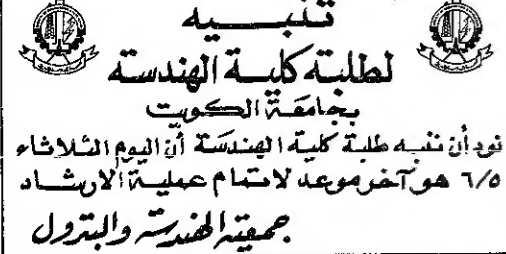 تنبيه
لطلبة كلية الهندسة
بجامعة الكويت
نود أن ننبه طلبة كلية الهندسة أن اليوم الثلاثاء
٦/٥ هو آخر موعد لاتمام عملية الارشاد
جمعية الهندسة والبترول